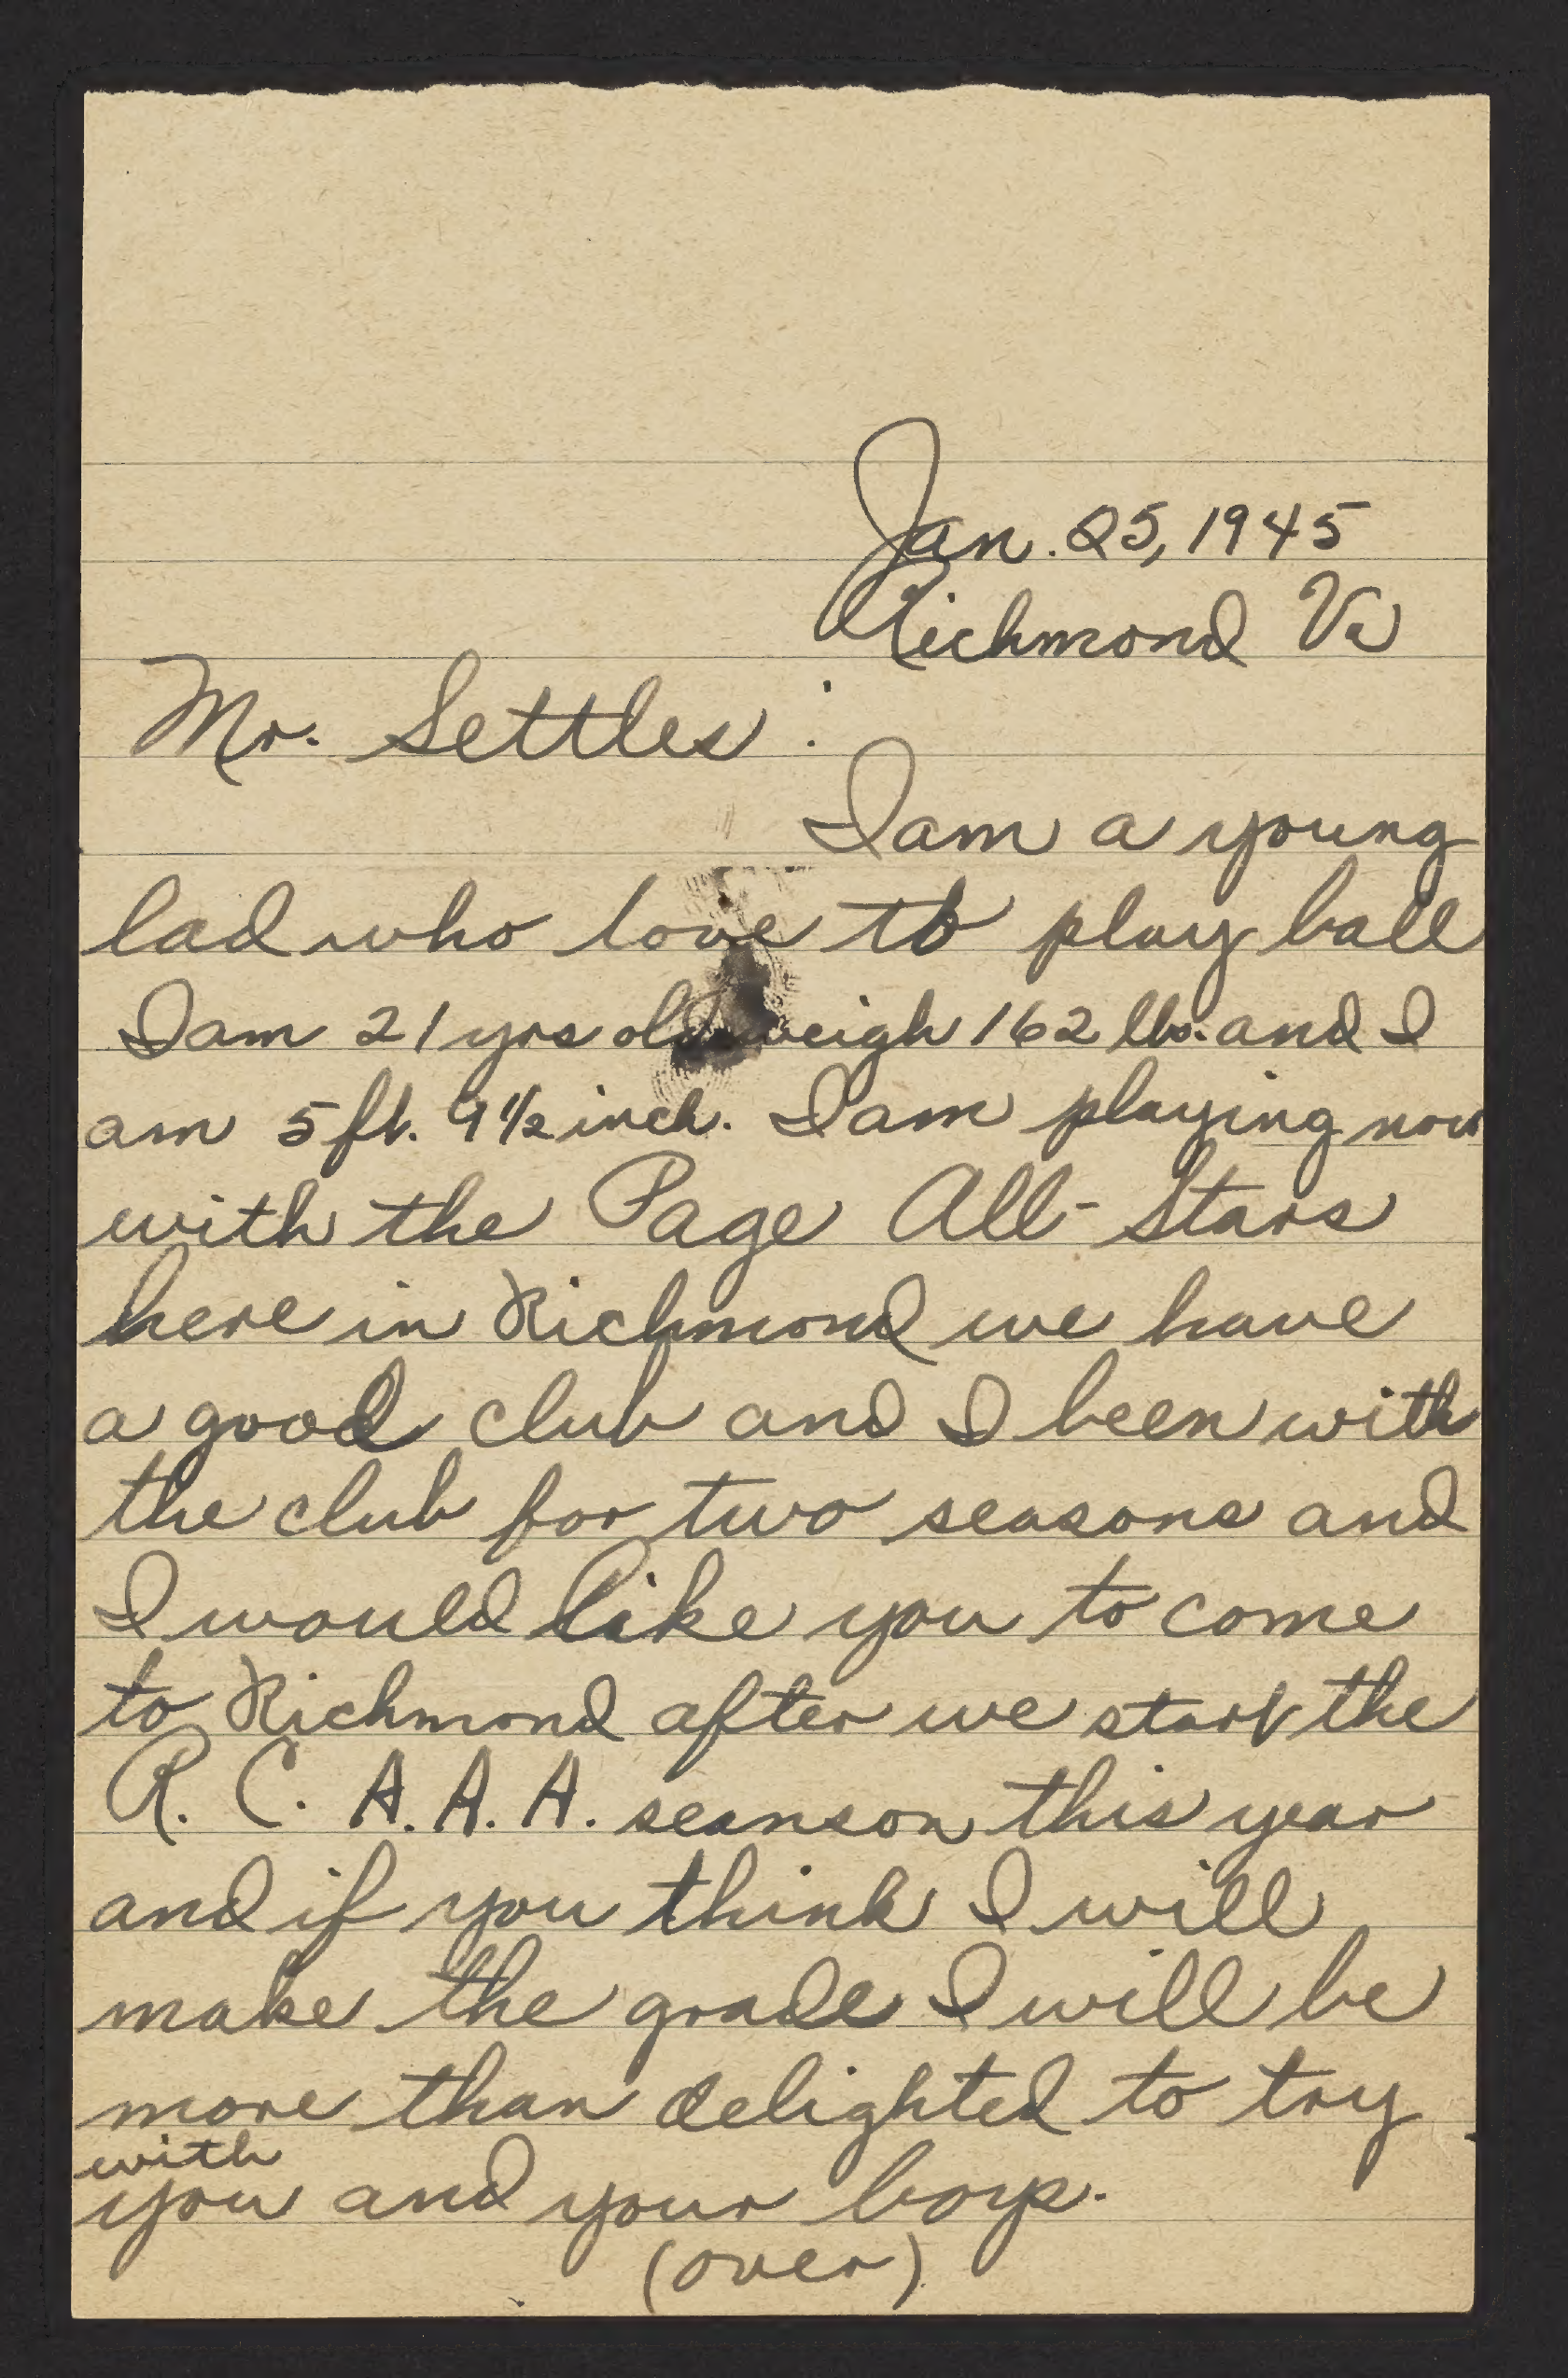 Jan. 25, 1945
Richmond Va
Mr. Settles :
I am a young
lad who love to play ball
I am 21 yrs old weigh 162 lbs. and I
am 5 ft. 9 1/2 inch. I am playing now
with the Page All-Stars
here in Richmond we have
a good club and I been with
the club for two seasons and
I would like you to come
to Richmond after we start the
R. C. A. A. A. seanson this year
and if you think I will
make the grade I will be
more than delighted to try
with
you and your boys.
(over)